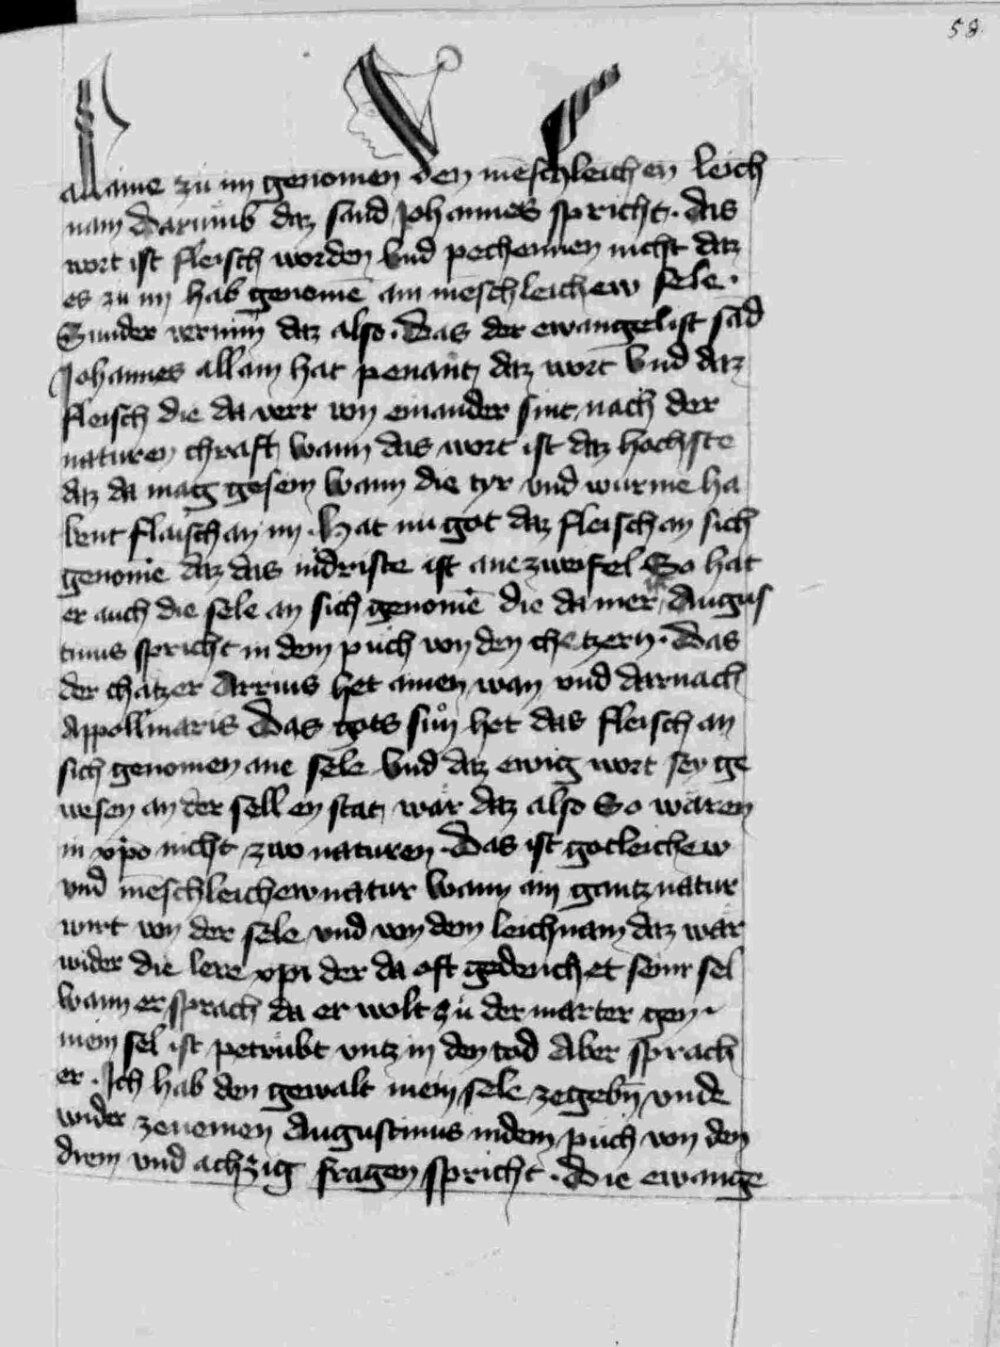 58.
allaine zu im genomen den mēschleichen leich
nam darumb daz sand Johannes spricht. das
wort ist fleisch worden vnd pechennen nicht daz
es zu im hab genomē ain mēschleichew sele.
Sunder vernim daz also. das der ewangelist sād
Johannes allain hat penant daz wort vnd daz
fleisch die da verr von einander sint nach der
naturen chraft wann das wort ist daz hochste
daz da mag gesein wann die tyr vnd wurme ha
bent flaisch an im. Hat nu got daz fleisch an sich
genomē daz das nidriste ist ane zweifel So hat
er auch die sele an sich genomē die da mer Augus
tinus spricht in dem puch von den chetzern. das
der chatzer Arrius het ainen wan vnd darnach
Appollinaris Das gots sun het das fleisch an
sich genomen ane sele vnd daz ewig wort sey ge
wesen an der sellen stat wår daz also So wåren
in xp̄o nicht zwo naturen. Das ist gotleichew
vnd mēschleichew natur wann ain gantz natur
wirt von der sele vnd von dem leichnam daz wår
wider die lere xp̄i der da oft gedench et seinr sel
wann er sprach da er wolt zu der marter gen.
mein sel ist petrubt vntz in den tod Aber sprach
er. Ich hab den gewalt mein sele zegebn̄ vnde
wider zenemen Augustinus in dem puch von den
drein vnd achzig fragen spricht. Die ewange